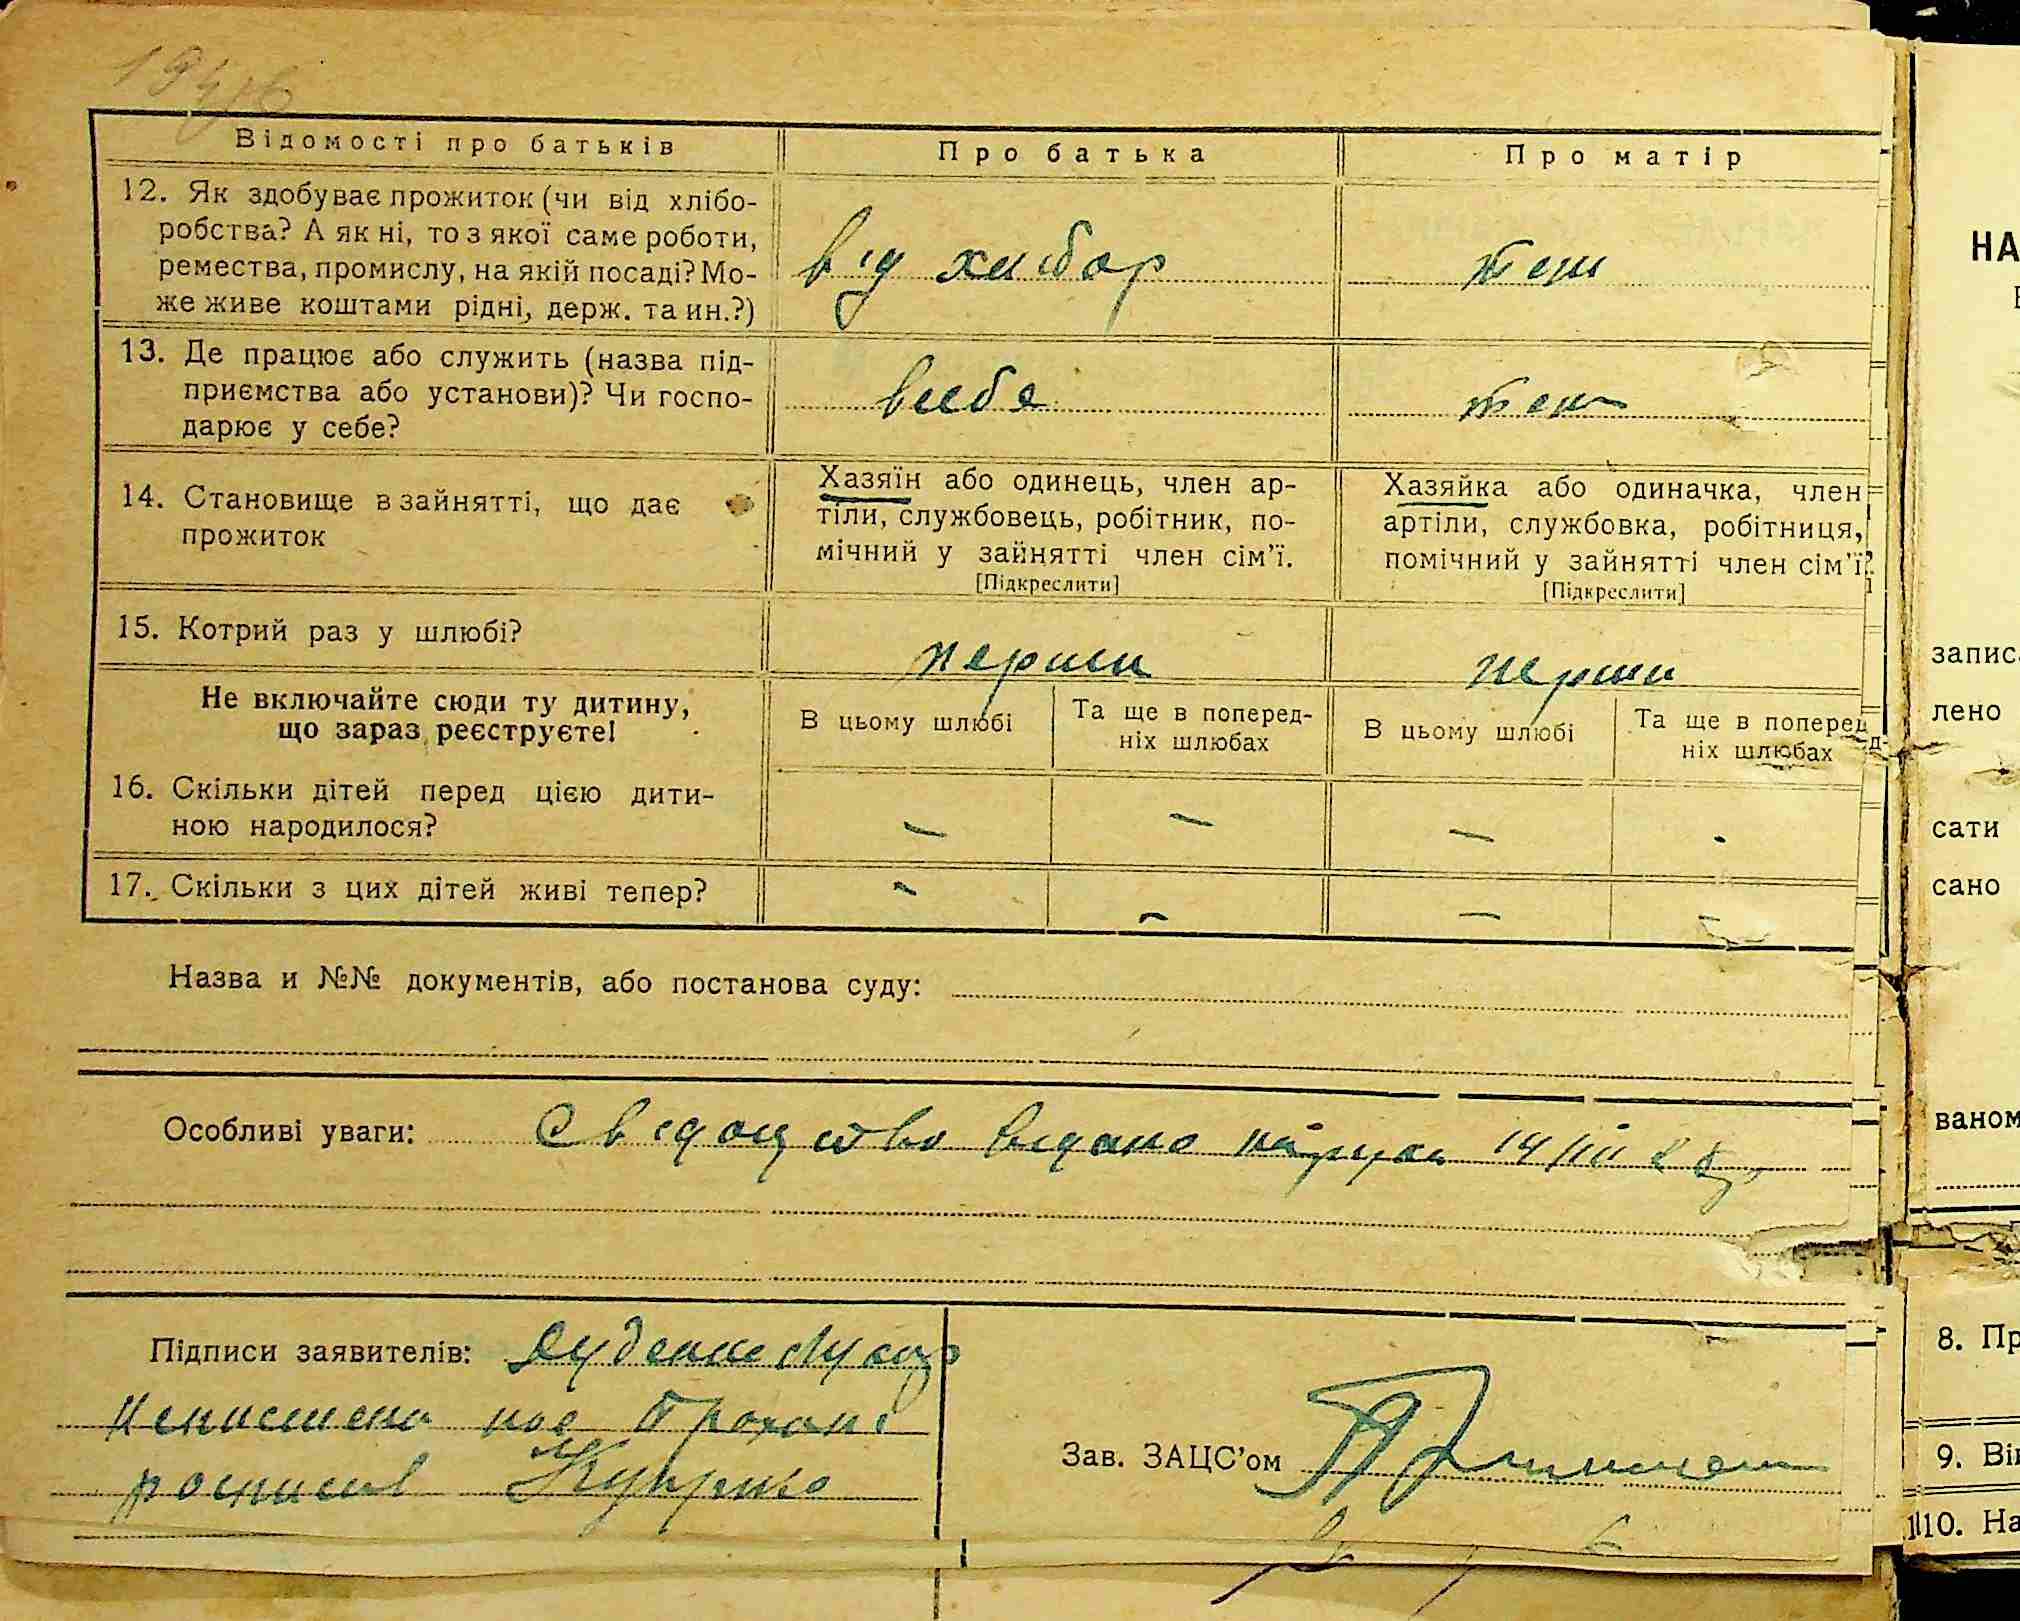 1946
Відомості про батьків
Про батька
Про матір
12. Як здобуває прожиток (чи від хлібо-
робства? А як ні, то з якої саме роботи,
ремества, промислу, на якій посаді? Мо-
же живе коштами рідні, держ. та ин.?)
від хлібор
теш
13. Де працює або служить (назва під-
приємства або установи)? Чи госпо-
дарює у себе?
всебе
теш
14. Становище в зайнятті, що дає
прожиток
Хазяїн або одинець, член ар-
тіли, службовець, робітник, по-
мічний у зайнятті член сім'ї.
[Підкреслити]
Хазяйка або одиначка, член
артіли, службовка, робітниця,
помічний у зайнятті член сім'ї?
[Підкреслити]
15. Котрий раз у шлюбі?
перши
перши
Не включайте сюди ту дитину,
що зараз реєструєте!
В цьому шлюбі
Та ще в поперед-
ніх шлюбах
В цьому шлюбі
Та ще в поперед
ніх шлюбах
д-
16. Скільки дітей перед цією дити-
ною народилося?
– – – -
17. Скільки з цих дітей живі тепер?
– – – –
Назва и №№ документів, або постанова суду:
Особливі уваги: Свідоцтво видано на руки 14/III
Підписи заявителів:
росписався
Зав. ЗАЦС'ом
НА
запис
лено
сати
сано
ваном
8. Пр
9. Він
10. На